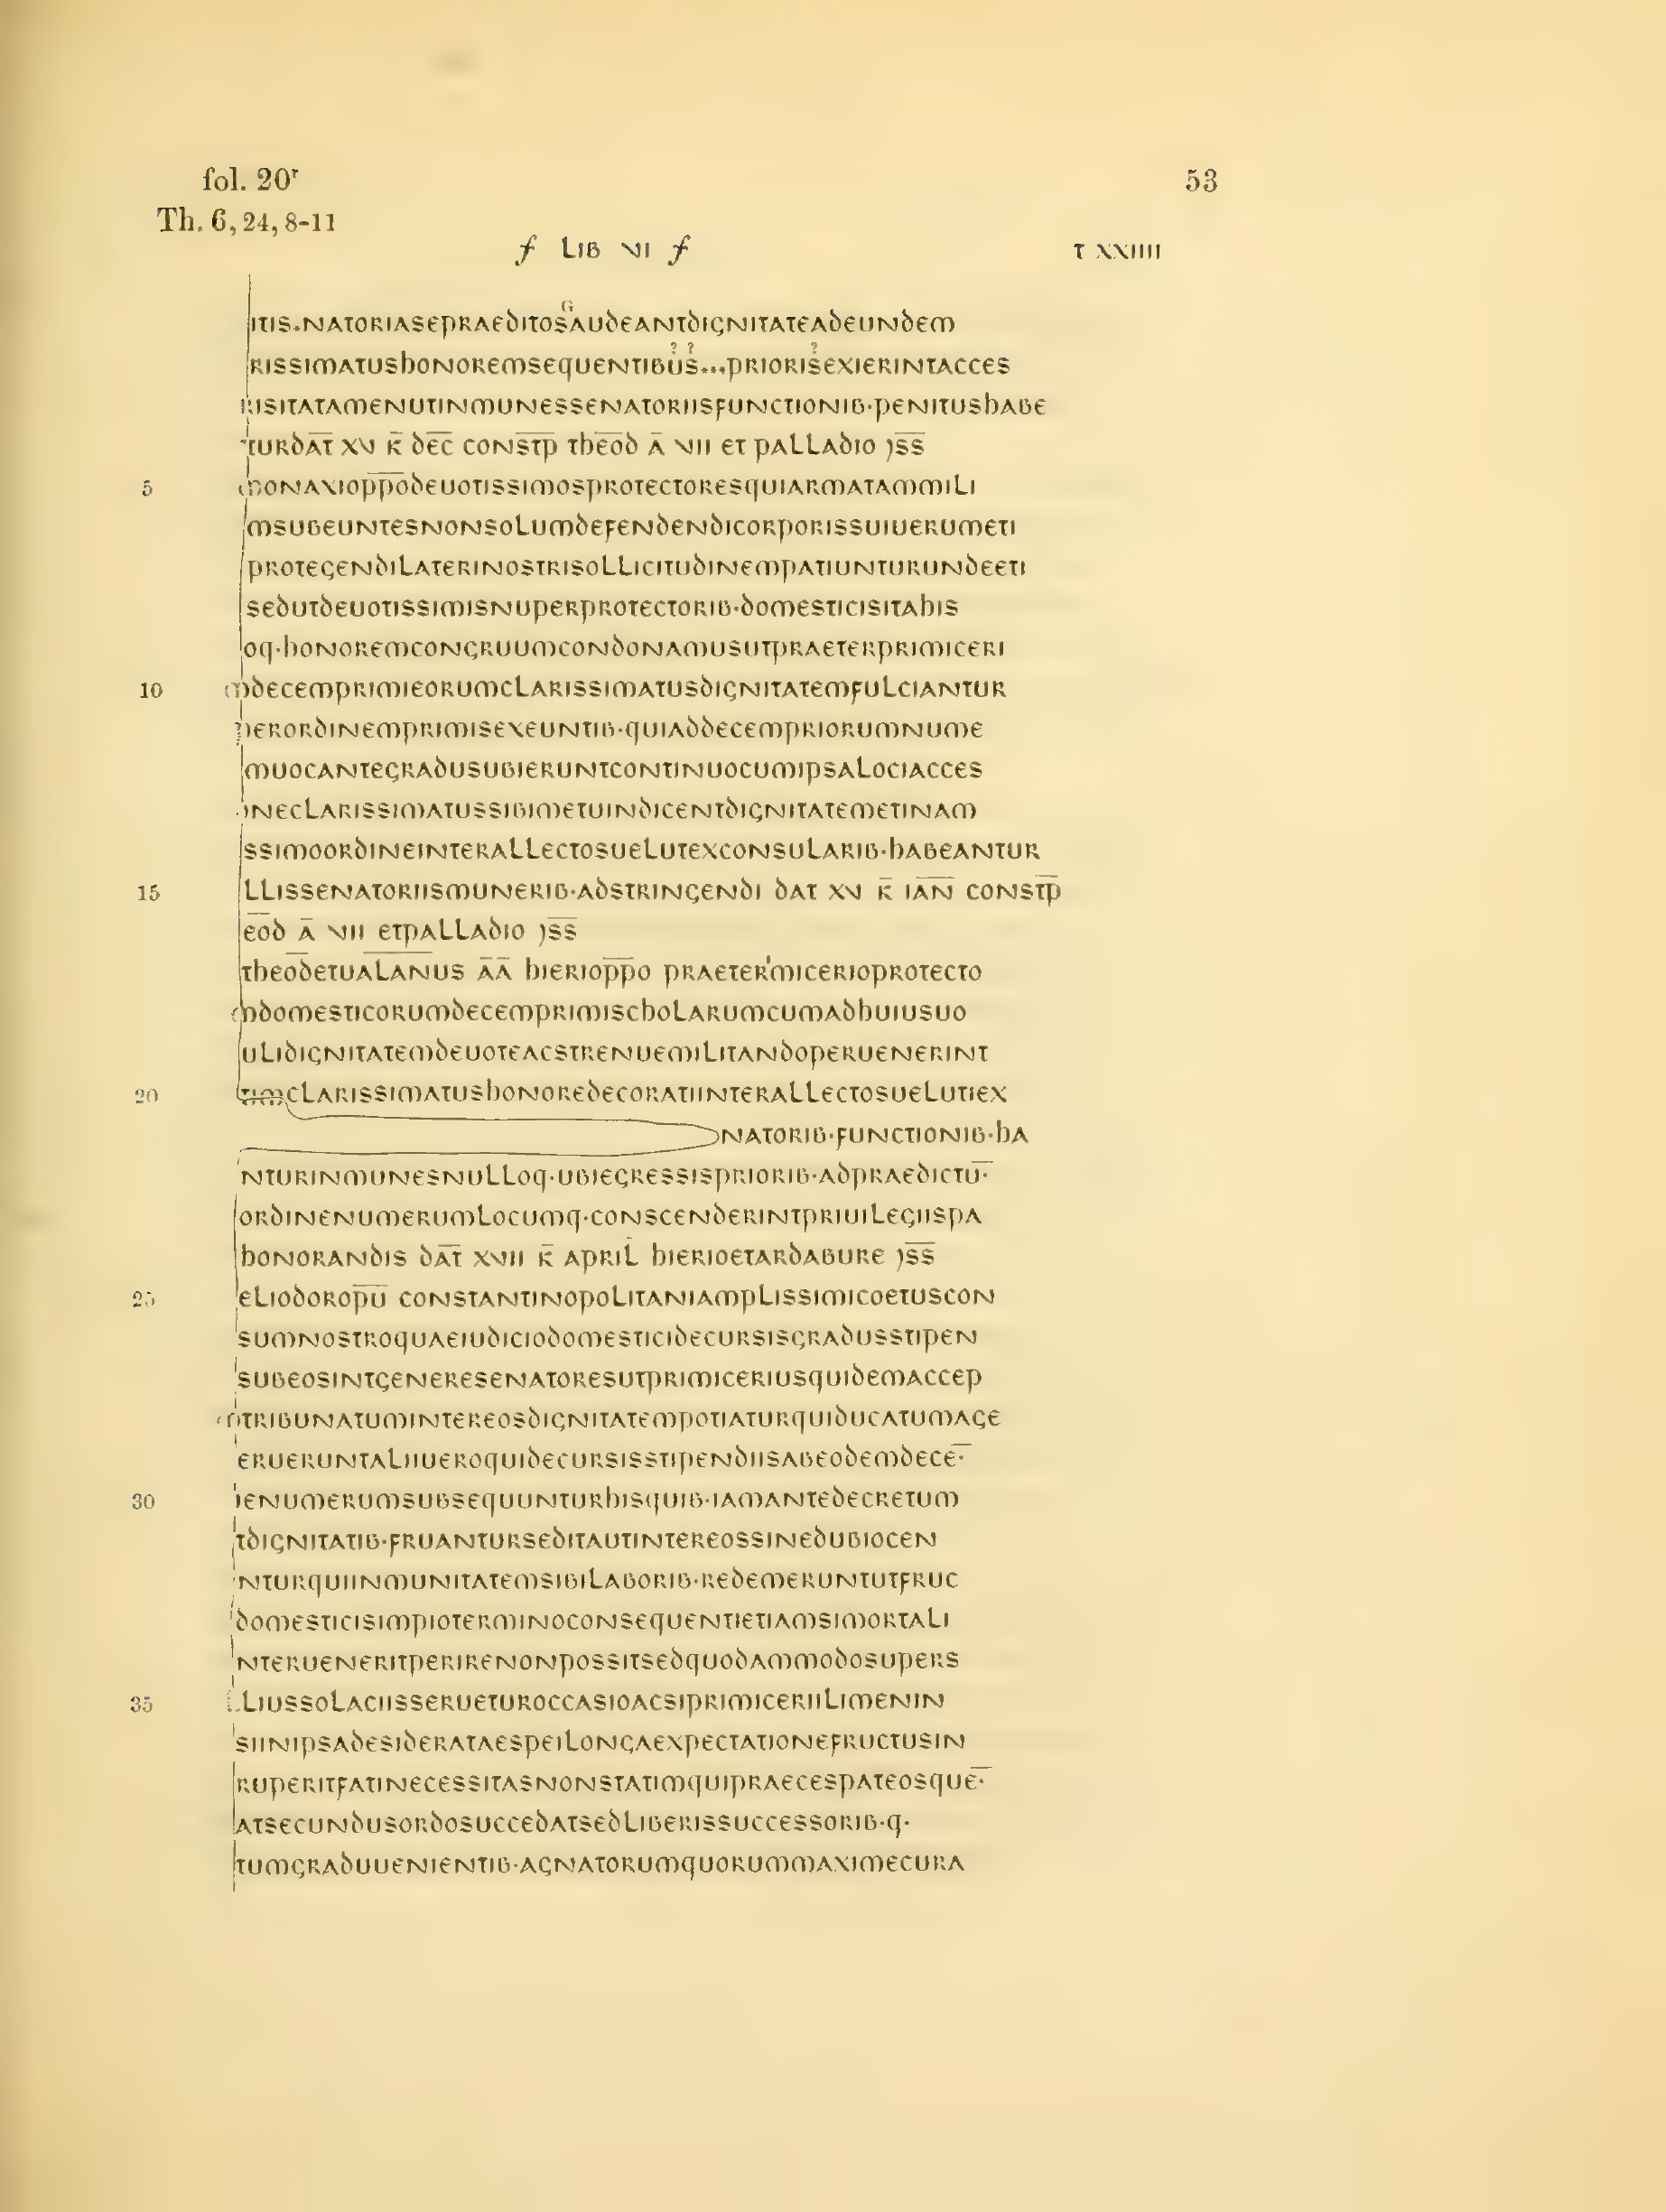 fol. 20r
53
Th. 6, 24, 8-11
ƒ LIB VI ƒ
T XXIIII
ITIS.NATORIASEPRAEDITOSAUDEANTDIGNITATEADEUNDEM
RISSIMATUSHONOREMSEQUENTIBUS...PRIORISEXIERINTACCES
RISITATAMENUTINMUNESSENATORIISFUNCTIONIB·PENITUSHABE
TURDAT̅ XV K̅ DEC̅ CONST̅P̅ THEO̅D A̅ VII ET PALLADIO )S̅S̅
5 MONAXIOP̅P̅ODEUOTISSIMOSPROTECTORESQUIARMATAMMILI
MSUBEUNTESNONSOLUMDEFENDENDICORPORISSUIUERUMETI
PROTEGENDILATERINOSTRISOLLICITUDINEMPATIUNTURUNDEETI
SEDUTDEUOTISSIMISNUPERPROTECTORIB·DOMESTICISITAHIS
OQ·HONOREMCONGRUUMCONDONAMUSUTPRAETERPRIMICERI
10 MDECEMPRIMIEORUMCLARISSIMATUSDIGNITATEMFULCIANTUR
PERORDINEMPRIMISEXEUNTIB·QUIADDECEMPRIORUMNUME
MUOCANTEGRADUSUBIERUNTCONTINUOCUMIPSALOCIACCES
INECLARISSIMATUSSIBIMETUINDICENTDIGNITATEMETINAM
SSIMOORDINEINTERALLECTOSUELUTEXCONSULARIB·HABEANTUR
15 LLISSENATORIISMUNERIB·ADSTRINGENDI DAT XV K̅ IAN̅ CONST̅P̅
EO̅D A̅ VII ETPALLADIO )S̅S̅
THEO̅DETUALANUS A̅A̅ HIERIOP̅P̅O PRAETER'MICERIOPROTECTO
MDOMESTICORUMDECEMPRIMISCHOLARUMCUMADHUIUSUO
ULIDIGNITATEMDEUOTEACSTRENUEMILITANDOPERUENERINT
20 TIMCLARISSIMATUSHONOREDECORATIINTERALLECTOSUELUTIEX
NATORIB·FUNCTIONIB·HA
NTURINMUNESNULLOQ·UBIEGRESSISPRIORIB·ADPRAEDICTU̅·
ORDINENUMERUMLOCUMQ·CONSCENDERINTPRIUILEGIISPA
HONORANDIS DAT̅ XVII K̅ APRIL HIERIOETARDABURE )S̅S̅
25 ELIODOROP̅U̅ CONSTANTINOPOLITANIAMPLISSIMICOETUSCON
SUMNOSTROQUAEIUDICIODOMESTICIDECURSISGRADUSSTIPEN
SUBEOSINTGENERESENATORESUTPRIMICERIUSQUIDEMACCEP
OTRIBUNATUMINTEREOSDIGNITATEMPOTIATURQUIDUCATUMAGE
ERUERUNTALIIUEROQUIDECURSISSTIPENDIISABEODEMDECE̅·
30 IENUMERUMSUBSEQUUNTURHISQUIB·IAMANTEDECRETUM
TDIGNITATIB·FRUANTURSEDITAUTINTEREOSSINEDUBIOCEN
NTURQUIINMUNITATEMSIBILABORIB·REDEMERUNTUTFRUC
DOMESTICISIMPIOTERMINOCONSEQUENTIETIAMSIMORTALI
NTERUENERITPERIRENONPOSSITSEDQUODAMMODOSUPERS
35 LIUSSOLACIISSERUETUROCCASIOACSIPRIMICERIILIMENIN
SIINIPSADESIDERATAESPEILONGAEXPECTATIONEFRUCTUSIN
RUPERITFATINECESSITASNONSTATIMQUIPRAECESPATEOSQUE̅·
ATSECUNDUSORDOSUCCEDATSEDLIBERISSUCCESSORIB·Q·
TUMGRADUUENIENTIB·AGNATORUMQUORUMMAXIMECURA